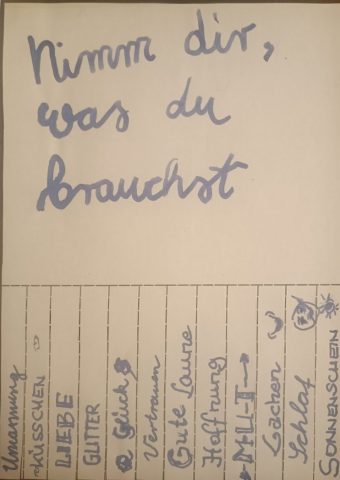 Nimm dir,
was du
brauchst
Umarmung
KÜSSCHEN
LIEBE
GLITTER
Glück
Vertrauen
Gute Laune
Hoffnung
M-U-T
Lachen
Schlaf
SONNENSCHEIN